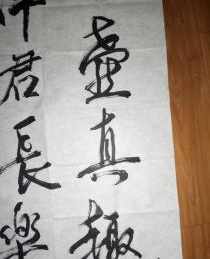 壺真趣
君長樂